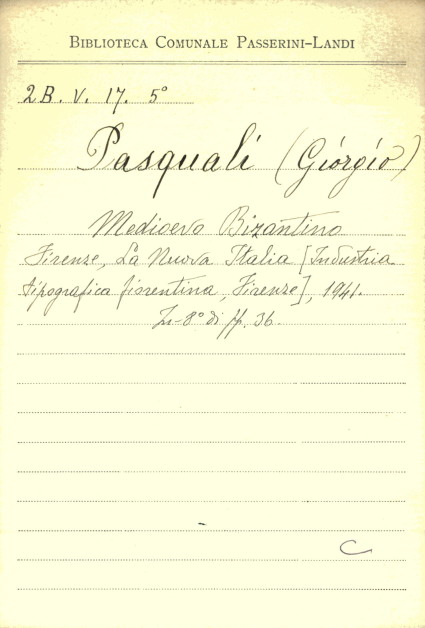 BIBLIOTECA COMUNALE PASSERINI-LANDI
2B. V. 17. 5°
Pasquali (Giorgio)
Medioevo Bizantino
Firenze, La Nuova Italia [Industria
tipografica fiorentina, Firenze], 1941.
In-8° di pp. 36.
C